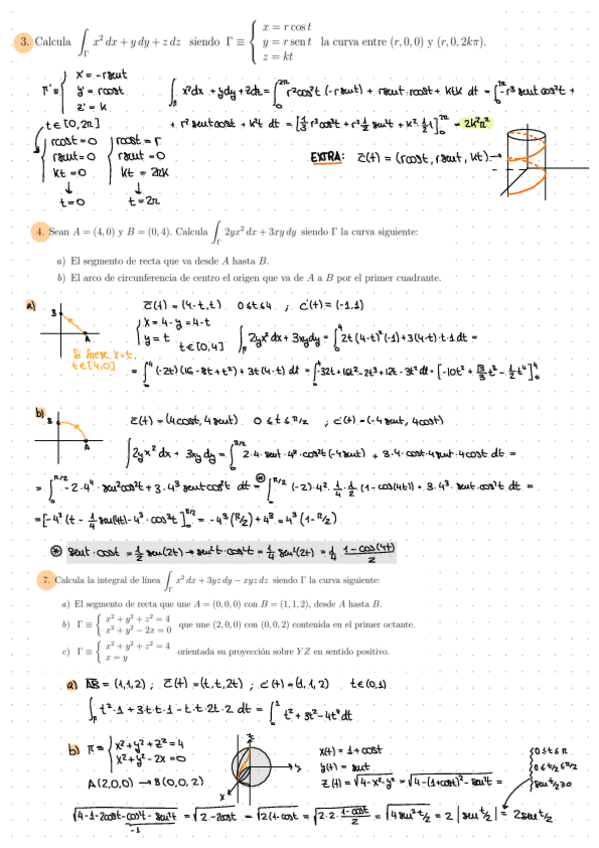 3. Calcula ∫_Γ x² dx + y dy + z dz siendo Γ ≡ { x = r cos t
y = r sen t la curva entre (r, 0, 0) y (r, 0, 2kπ).
z = kt
Γ' = { x' = -r sent
y' = r cost
z' = k
∫_Γ x²dx + ydy + zdz = ∫₀^2π r²cos²t (-r sent) + r sent · r cost + ktk dt = ∫₀^2π -r³ sent cos²t +
t ∈ [0, 2π] + r² sent cost + k²t dt = [1/3 r³ cos³t + r² 1/2 sen²t + k² · 1/2 t]₀^2π = 2k²π²
{ r cost = 0
r sent = 0
kt = 0
↓
t = 0
{ r cost = r
r sent = 0
kt = 2πk
↓
t = 2π
EXTRA: c̄(t) = (r cost, r sent, kt) →
4. Sean A = (4, 0) y B = (0, 4). Calcula ∫_Γ 2yx² dx + 3xy dy siendo Γ la curva siguiente:
a) El segmento de recta que va desde A hasta B.
b) El arco de circunferencia de centro el origen que va de A a B por el primer cuadrante.
a) c̄(t) = (4-t, t) 0 ≤ t ≤ 4 ; c'(t) = (-1, 1)
B
A
{ x = 4 - y = 4 - t
y = t t ∈ [0, 4]
∫_Γ 2yx² dx + 3xy dy = ∫₀⁴ 2t (4-t)² (-1) + 3(4-t) · t · 1 dt =
t ∈ [4, 0]
= ∫₀⁴ (-2t)(16 - 8t + t²) + 3t (4-t) dt = ∫₀⁴ -32t + 16t² - 2t³ + 12t - 3t² dt = [-10t² + 13/3 t³ - 1/2 t⁴]₀⁴
b) c̄(t) = (4cost, 4sent) 0 ≤ t ≤ π/2 ; c'(t) = (-4 sent, 4cost)
B
A
∫_Γ 2yx² dx + 3xy dy = ∫₀^π/2 2·4·sent·4²·cos²t (-4sent) + 3·4·cost·4sent·4cost dt =
= ∫₀^π/2 -2·4⁴·sen²t cos²t + 3·4³ sent cos²t dt =⊛ ∫₀^π/2 (-2)·4²·1/4·1/2 (1 - cos(4t)) + 3·4³·sent·cos²t dt =
= [-4³ (t - 1/4 sen(4t) - 4³·cos³t]₀^π/2 = -4³ (π/2) + 4³ = 4³ (1 - π/2)
⊛ sent·cost = 1/2 sen(2t) → sen²t·cos²t = 1/4 sen²(2t) = 1/4 · (1 - cos(4t))/2
7. Calcula la integral de línea ∫_Γ x² dx + 3yz dy − xyz dz siendo Γ la curva siguiente:
a) El segmento de recta que une A = (0, 0, 0) con B = (1, 1, 2), desde A hasta B.
b) Γ ≡ { x² + y² + z² = 4
x² + y² − 2x = 0 que une (2, 0, 0) con (0, 0, 2) contenida en el primer octante.
c) Γ ≡ { x² + y² + z² = 4
x = y orientada su proyección sobre Y Z en sentido positivo.
a) AB = (1, 1, 2) ; c̄(t) = (t, t, 2t) ; c'(t) = (1, 1, 2) t ∈ (0, 1)
∫_Γ t²·1 + 3t·t·1 - t·t·2t·2 dt = ∫₀¹ t² + 3t² - 4t³ dt
b) Γ ≡ { x² + y² + z² = 4
x² + y² - 2x = 0
A(2, 0, 0) → B(0, 0, 2)
z
y
x
x(t) = 1 + cost
y(t) = sent
z(t) = √(4 - x² - y²) = √(4 - (1+cost)² - sen²t) =
{ 0 ≤ t ≤ π
0 ≤ t/2 ≤ π/2
sen t/2 ≥ 0
√(4 - 1 - 2cost - cos²t - sen²t) = √(2 - 2cost) = √(2(1 - cost) = √(2·2·(1 - cost)/2) = √(4 sen² t/2) = 2 |sen t/2| = 2 sen t/2
-1